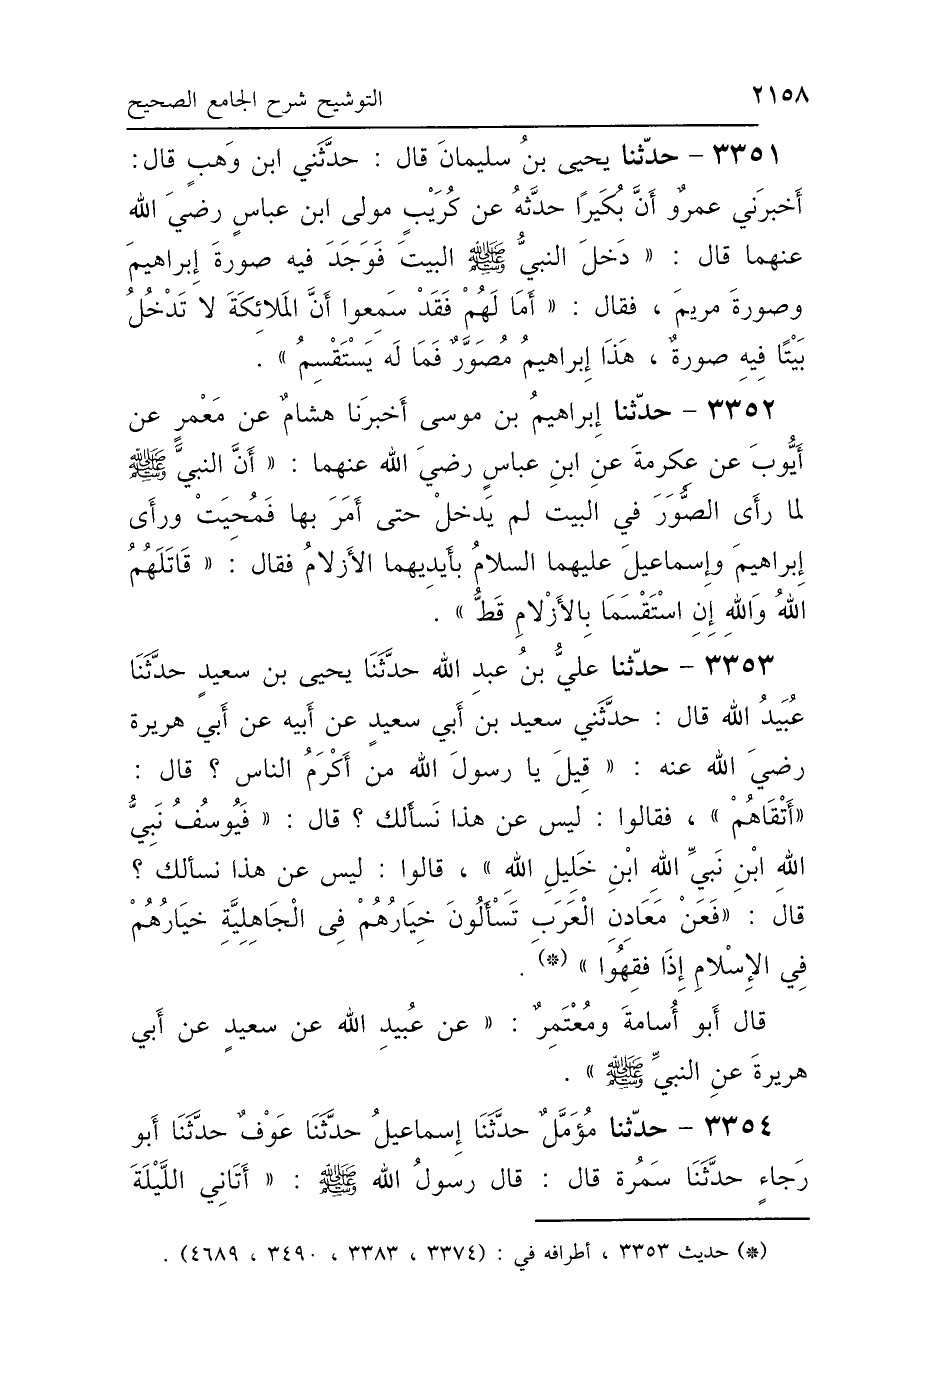 ٢١٥٨ التوشيح شرح الجامع الصحيح
٣٣٥١ - حدّثنا يحيى بنُ سليمانَ قال : حدَّثَني ابن وَهبٍ قال :
أَخبرَني عمروٌ أَنَّ بُكَيرًا حدثَّهُ عن كُرَيْبٍ مولى ابن عباسٍ رضيَ الله
عنهما قال : « دَخلَ النبيُّ ﷺ البيتَ فَوَجَدَ فيه صورةَ إبراهيمَ
وصورةَ مريمَ ، فقال : « أَمَا لَهُمْ فَقَدْ سَمِعوا أنَّ الَملائكَةَ لا تَدْخُلُ
بَيْتًا فِيهِ صورةٌ ، هَذَا إبراهيمُ مُصَوَّرٌ فَمَا لَه يَسْتَقْسِمُ » .
٣٣٥٢ - حدّثنا إبراهيمُ بن موسى أخبرَنا هشامٌ عن مَعْمرٍ عن
أيُّوبَ عن عكرمةَ عنِ ابنِ عباسٍ رضيَ الله عنهما : « أنَّ النبيَّ ﷺ
لما رأى الصُّوَرَ في البيت لم يَدخلْ حتى أمَرَ بها فَمُحِيَتْ ورأى
إبراهيمَ وإسماعيلَ عليهما السلامُ بأيديهما الأزلامُ فقال : « قَاتَلَهُمُ
اللهُ وَاللهِ إِنِ اسْتَقْسَمَا بِالأَزْلامِ قَطُّ » .
٣٣٥٣ - حدّثنا عليُّ بنُ عبدِ الله حدَّثَنَا يحيى بن سعيدٍ حدَّثَنَا
عُبَيدُ الله قال : حدَّثَني سعيد بن أبي سعيدٍ عن أبيه عن أبي هريرة
رضيَ الله عنه : « قِيلَ يا رسولَ الله من أَكْرَمُ الناس ؟ قال :
«أَتْقَاهُمْ » ، فقالوا : ليس عن هذا نَسألك ؟ قال : « فَيُوسُفُ نَبِيُّ
اللهِ ابْنِ نَبيِّ اللهِ ابْنِ خَلِيلِ اللهِ » ، قالوا : ليس عن هذا نسألك ؟
قال : «فَعَنْ مَعَادِنِ الْعَرَبِ تَسْأَلُونَ خِيَارُهُمْ فِى الْجَاهِلِيَّةِ خيَارُهُمْ
فِي الإِسْلامِ إِذَا فَقِهُوا » (*) .
قال أبو أُسامةَ ومُعْتَمِرٌ : « عن عُبيدِ الله عن سعيدٍ عن أبي
هريرةَ عنِ النبيِّ ﷺ » .
٣٣٥٤ - حدّثنا مُؤَمَّلٌ حدَّثَنَا إسماعيلُ حدَّثَنَا عَوْفٌ حدَّثَنَا أبو
رَجاءٍ حدَّثَنَا سَمُرة قال : قال رسولُ الله ﷺ : « أَتَانِي اللَّيْلَةَ
(*) حديث ٣٣٥٣ ، أطرافه في : (٣٣٧٤ ، ٣٣٨٣ ، ٣٤٩٠ ، ٤٦٨٩) .